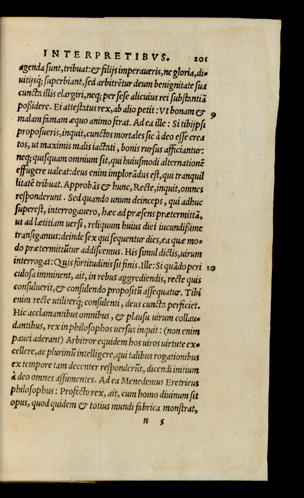 INTERPRETIBVS. 201
agenda sunt, tribuat: & filijs imperaueris, ne gloria, di-
uitijsq; superbiant, sed arbitrẽtur deum benignitate sua
cuncta illis elargiri, neq; per sese alicuius rei substantiã
possidere. Ei attestatus rex, ab alio petit: Vt bonam &
malam famam æquo animo ferat. Ad ea ille: Si tibijpsi
proposueris, inquit, cunctos mortales sic à deo esse crea
tos, ut maximis malis iactati, bonis rursus afficiantur:
neq; quisquam omnium sit, qui huiusmodi alternationẽ
effugere ualeat: deus enim implorãdus est, qui tranquil
litatẽ tribuat. Approbãs & hunc, Recte, inquit, omnes
responderunt. Sed quando unum deinceps, qui adhuc
superest, interrogauero, hæc ad præsens prætermittã,
ut ad lætitiam uersi, reliquum huius diei iucundissime
transigamus: deinde sex qui sequentur dies, ea quæ mo-
do prætermittũtur addiscemus. His simul dictis, uirum
interrogat: Quis fortitudinis sit finis. Ille: Si quãdo peri
culosa imminent, ait, in rebus aggrediendis, recte quis
consuluerit, & consulendo propositũ assequatur. Tibi
enim recte utiliterq; consulenti, deus cuncta perficiet.
Hic acclamantibus omnibus, & plausu uirum collau-
dantibus, rex in philosophos uersus inquit: (non enim
pauci aderant) Arbitror equidem hos uiros uirtute ex-
cellere, ac plurimũ intelligere, qui talibus rogationibus
ex tempore tam decenter responderũt, dicendi initium
à deo omnes assumentes. Ad ea Menedemus Eretricus
philosophus: Profecto rex, ait, cum homo diuinum sit
opus, quod quidem & totius mundi fabrica monstrat,
n 5
9
10